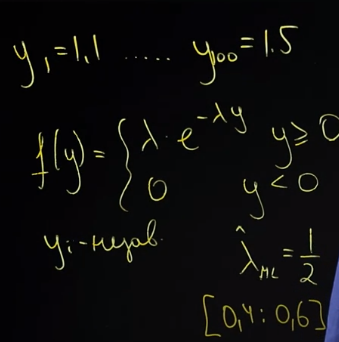 y₁=1,1 ..... y₁₀₀=1.5
f(y)= { λ·e^{-λy} y≥0
0 y<0
yᵢ-незав.
λ̂_ML = 1/2
[0,4: 0,6]